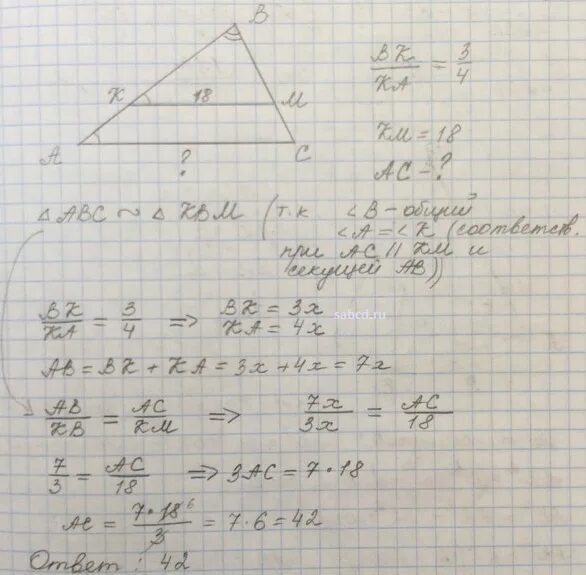 B
K 18 M
A ? C
BK/KA = 3/4
KM = 18
AC - ?
△ABC ~ △KBM (т.к ∠B - общий
∠A = ∠K (соответств.
при AC || KM и
секущей AB))
BK/KA = 3/4 => BK = 3x
KA = 4x
sabcd.ru
AB = BK + KA = 3x + 4x = 7x
AB/KB = AC/KM => 7x/3x = AC/18
7/3 = AC/18 => 3AC = 7·18
AC = 7·18⁶/3 = 7·6 = 42
Ответ: 42